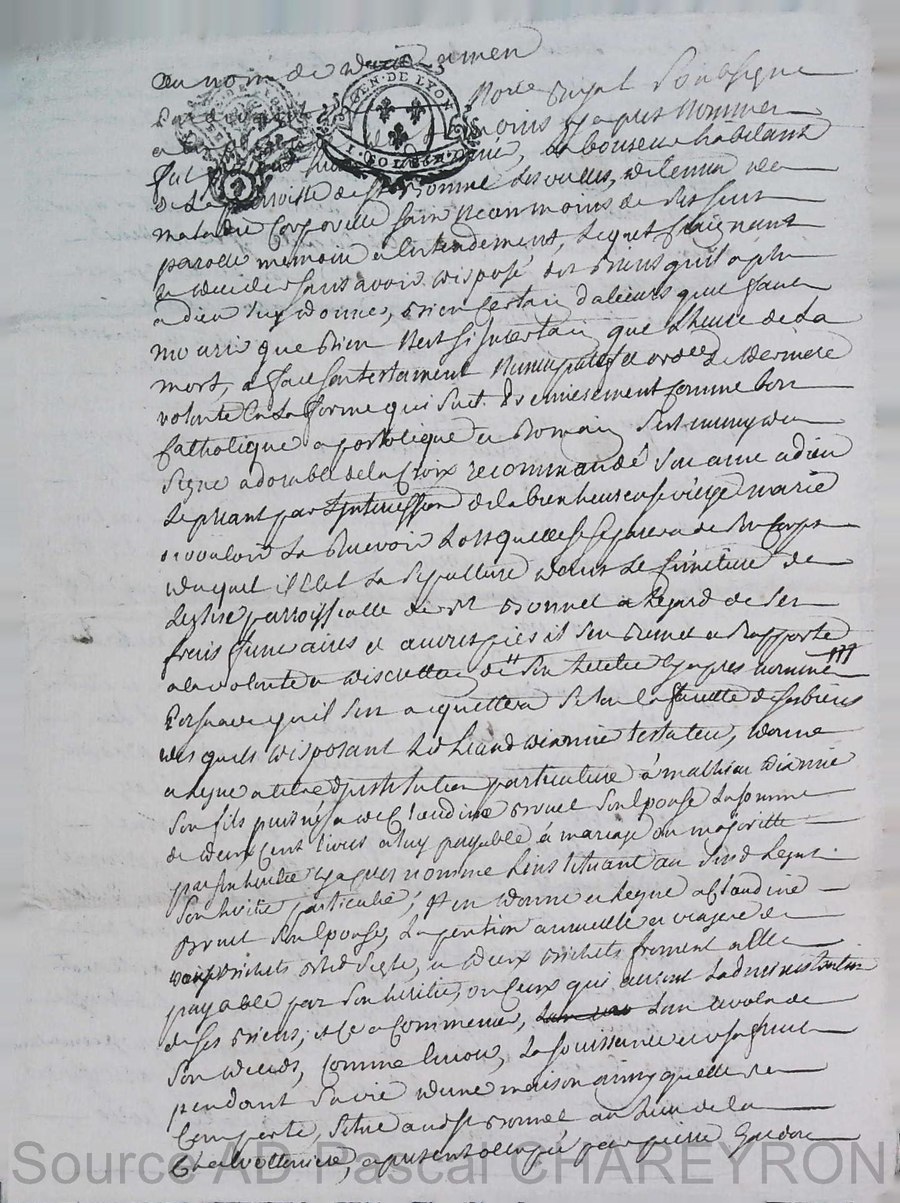 au nom de dieu amen
Par devant Notre Royal Soussigné
GEN. DE LYON
a temoins cy apres nommes
fut habitant
de la parroisse de St Bonnet des oulles, detenu de
maladie Corporelle sain neanmoins de ses sens
parolle memoire et entendement, lequel Craignant
de deceder sans avoir disposé des biens qu'il a plu
a dieu luy donner, bien Certain d'alieurs que faut
mourir que Rien Nest si Incertain que Lheure de La
mort, a fait son testament Nuncupatif et ordce de derniere
volonté en La forme qui suit. Premierement comme bon
Catholique apostolique et Romain s'est muny du
Signe adorable de la Croix recommandé son ame a dieu
Le priant par Lintercession de la bienheureuse vierge marie
vouloir La Recevoir Lorsquelle se separera de son Corps
duquel il Elit La Sepulture dans Le Cimetiere de
Leglise parroissialle de St Bonnet a Legard de ses
frais funeraires et œuvres pies il s'en Remet et Rapporte
a la volonté et discretion de son heritier cy apres nommé
Persuadé qu'il s'en acquittera selon la faculté de ses biens
des quels disposant Led testateur, donne
et legue a titre d'institution particuliere à mathieu
son fils puisné de Claudine Bruel son Epouse La somme
de deux Cent livres a luy payable à mariage ou majorité
par son heritier cy apres nommé Linstituant au susd Legat
son heritier particulier, Item donne et legue a Claudine
Bruel son Epouse, La pention annuelle et viagere de
bichets bled seigle, et deux bichets froment a Elle
payable par son heritier, ou Ceux qui auront Ladministration
de ses biens, et Ce a Commencer, Lan revolu de
son deceds, Comme Encore, La jouissance et usufruit
pendant sa vie d'une maison ainsy quelle se
Comporte, Situé aud St Bonnet au Lieu de la
apresent occupée par pierre
Source AD Pascal CHAREYRON